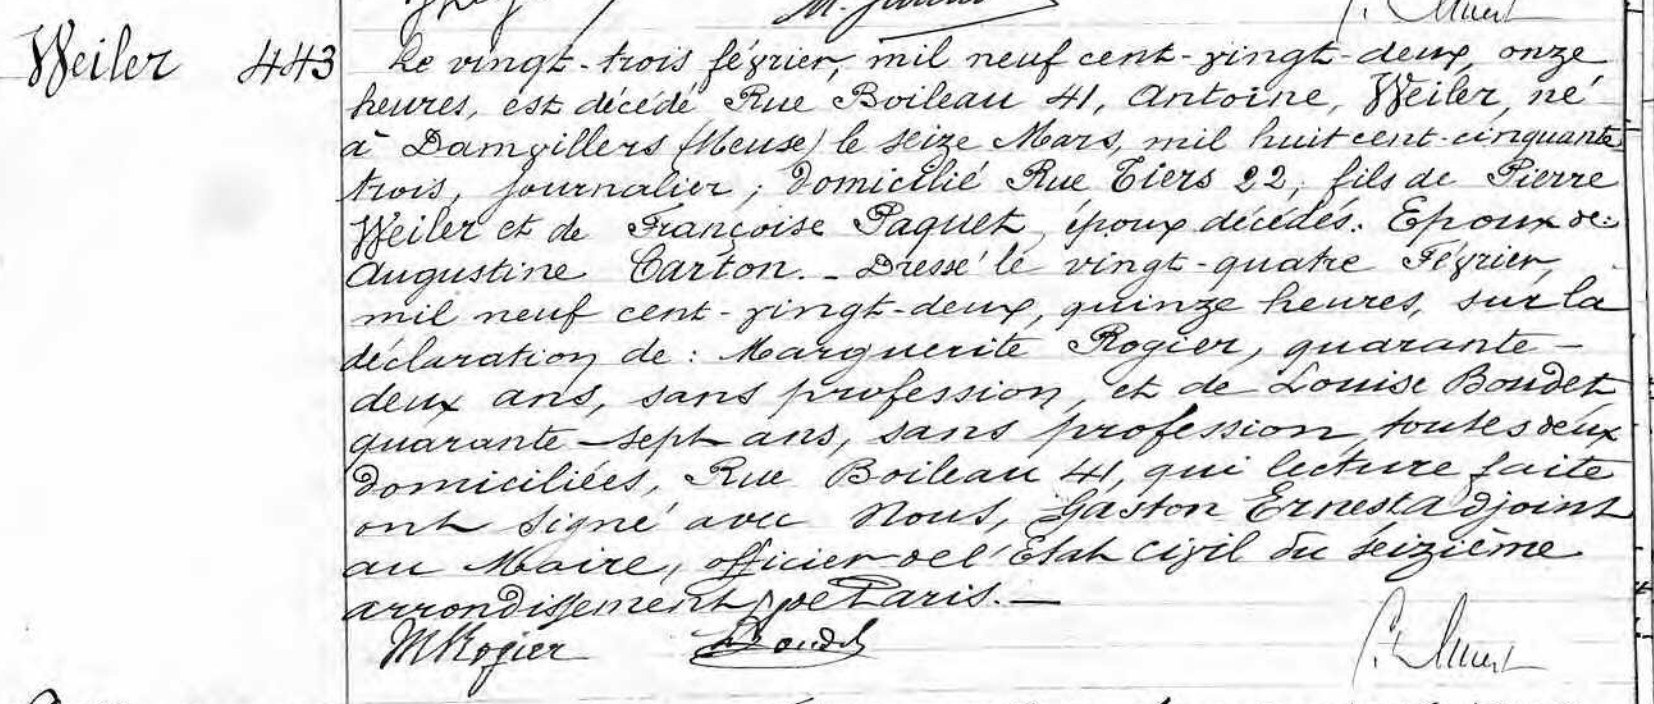 Weiler 443
Le vingt-trois février, mil neuf cent-vingt-deux, onze
heures, est décédé Rue Boileau 41, Antoine, Weiler, né
à Damvillers (Meuse) le seize Mars, mil huit cent-cinquante
trois, journalier, domicilié Rue Tiers 22, fils de Pierre
Weiler et de Françoise Paquet, époux décédés. Epoux de:
Augustine Carton. - Dressé le vingt-quatre Février,
mil neuf cent-vingt-deux, quinze heures, sur la
déclaration de: Marguerite Rogier, quarante-
deux ans, sans profession, et de Louise Boudet
quarante-sept ans, sans profession, toutes deux
domiciliées, Rue Boileau 41, qui lecture faite
ont signé avec Nous, Gaston Ernest Adjoint
au Maire, officier de l'Etat Civil du seizième
arrondissement de Paris. —
MRogier Boudet